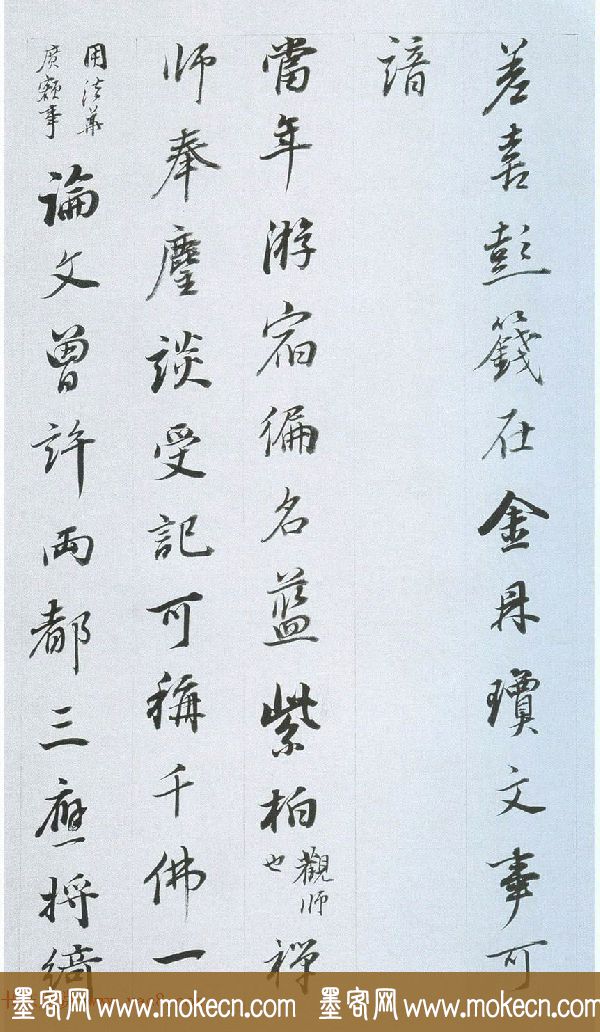 差喜彭籛在金丹瓊文事可
諳
當年游宿徧名藍紫柏觀師也禅
师奉麈談受記可稱千佛一
用法華廣額事論文曾許両都三應将綺
墨客网 www.mokecn.com 墨客网 www.mokecn.com